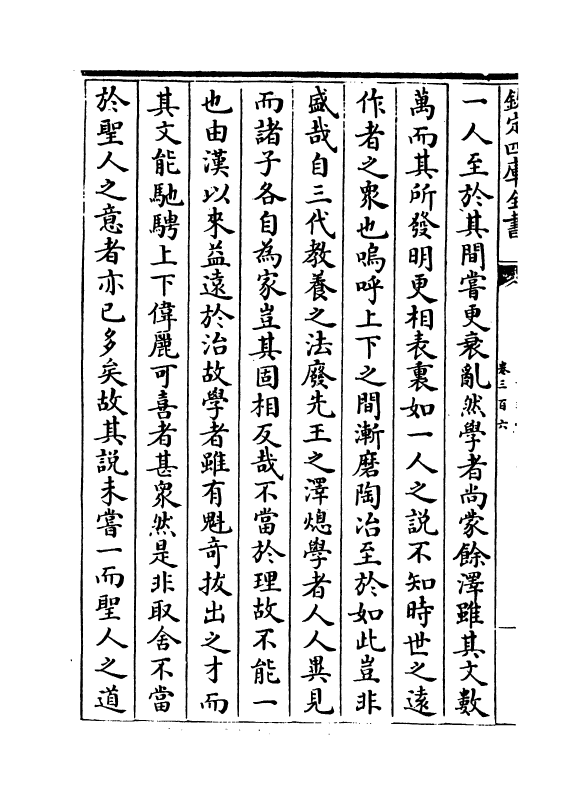 欽定四庫全書
卷三百六
一人至於其間嘗更衰亂然學者尚蒙餘澤雖其文數
萬而其所發明更相表裏如一人之説不知時世之遠
作者之衆也嗚呼上下之間漸磨陶冶至於如此豈非
盛哉自三代教養之法廢先王之澤熄學者人人異見
而諸子各自為家豈其固相反哉不當於理故不能一
也由漢以來益遠於治故學者雖有魁奇拔出之才而
其文能馳騁上下偉麗可喜者甚衆然是非取舍不當
於聖人之意者亦已多矣故其説未嘗一而聖人之道